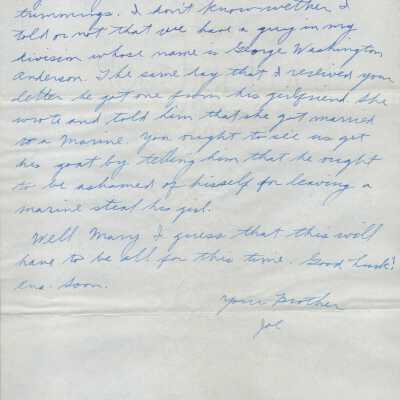 trimmings. I don't know wether I
told or not that we have a guy in my
division whose name is George Washington
Anderson. The same day that I received your
letter he got one from his girlfriend she
wrote and told him that she got married
to a Marine. You ought to see us get
his goat by telling him that he ought
to be ashamed of hisself for leaving a
marine steal his girl.
Well Mary I guess that this will
have to be all for this time. Good Luck!
soon.
Your Brother
Joe